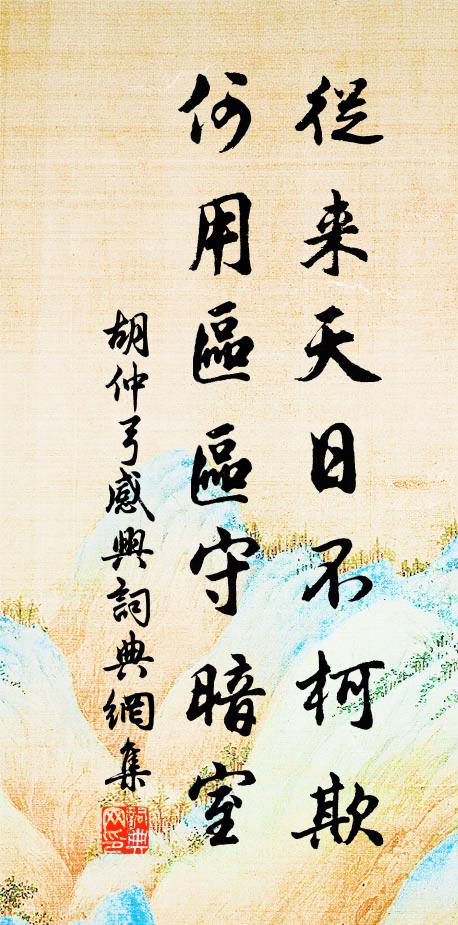 從来天日不柯欺
何用區區守暗室
胡仲弓感興詞典網集
詞典网印